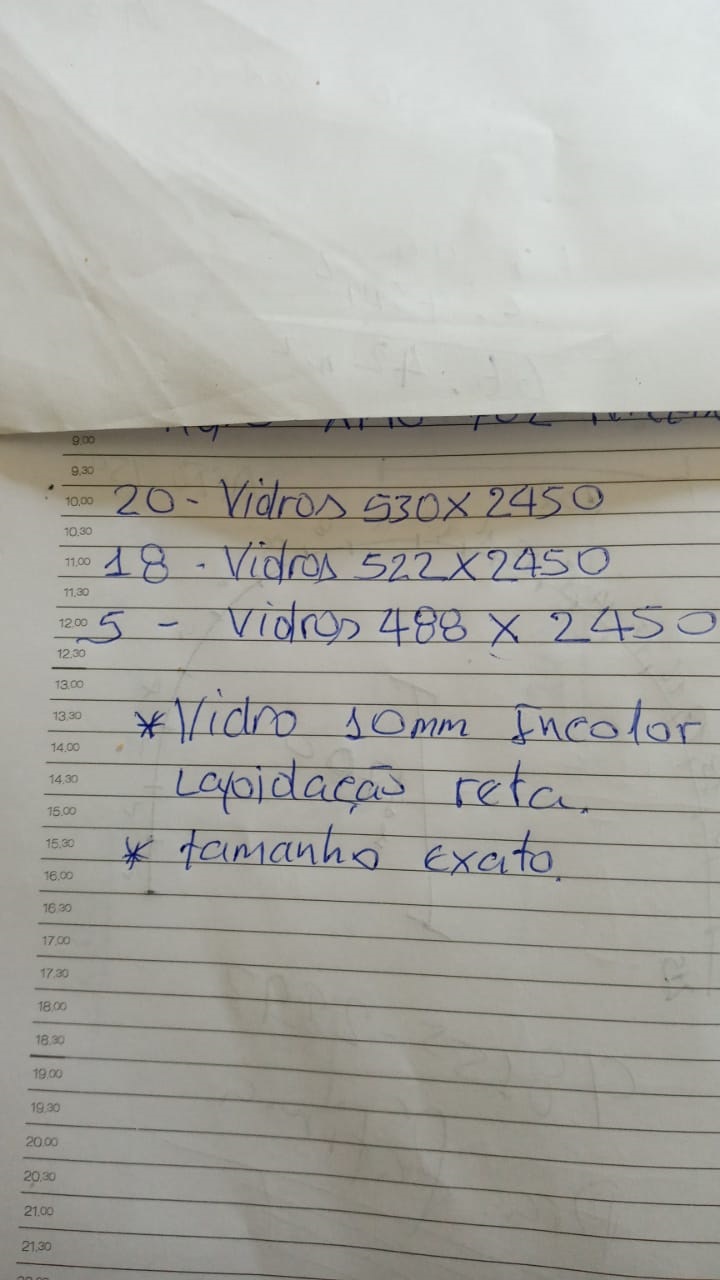 9.00
9.30
10.00 20 - Vidros 530 X 2450
10.30
11.00 18 - Vidros 522 X 2450
11.30
12.00 5 - Vidros 488 X 2450
12.30
13.00
13.30 * Vidro 10mm Incolor
14.00
14.30 Lapidação reta.
15.00
15.30 * tamanho exato.
16.00
16.30
17.00
17.30
18.00
18.30
19.00
19.30
20.00
20.30
21.00
21.30